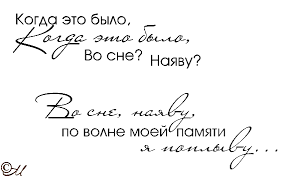 Когда это было,
Когда это было,
Во сне? Наяву?
Во сне, наяву,
по волне моей памяти
я поплыву...